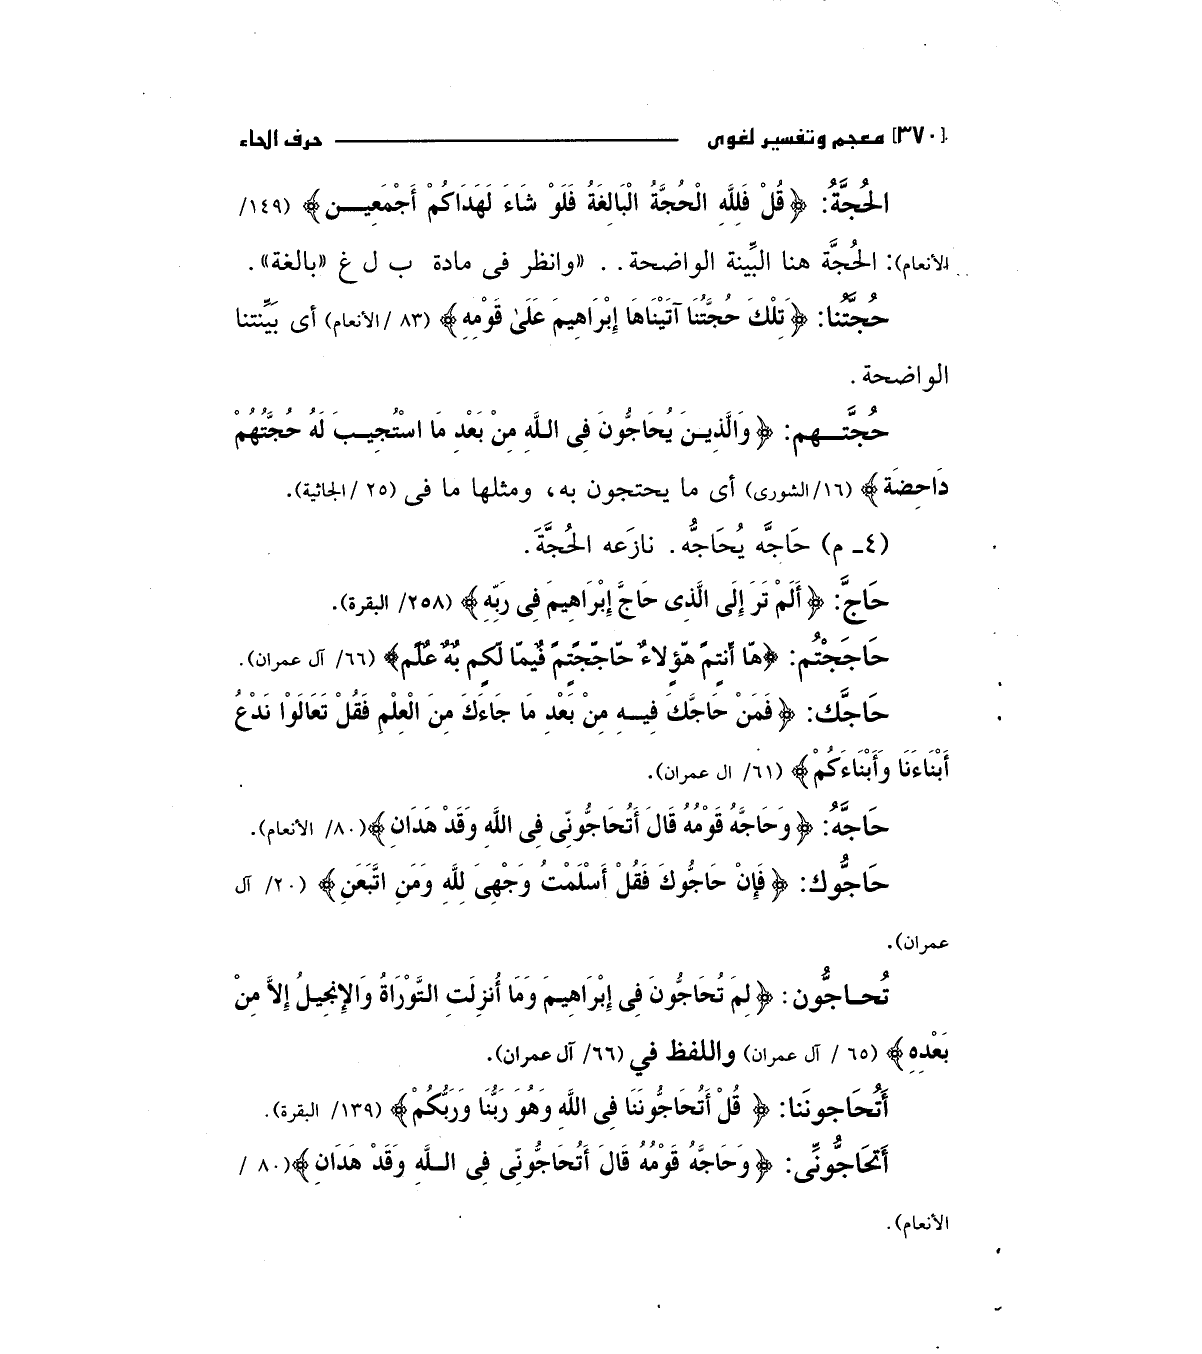 [٣٧٠] معجم وتفسير لغوى حرف الحاء
الحُجَّةُ: ﴿قُلْ فَلِلَّهِ الْحُجَّةُ الْبَالِغَةُ فَلَوْ شَاءَ لَهَدَاكُمْ أَجْمَعِيـــن﴾ (١٤٩/
الأنعام): الحُجَّة هنا البِّينة الواضحة. . «وانظر فى مادة ب ل غ «بالغة».
حُجَّتُنا: ﴿تِلْكَ حُجَّتُنَا آتَيْنَاهَا إِبْرَاهِيمَ عَلَىٰ قَوْمِهِ﴾ (٨٣ /الأنعام) أى بَيِّنتنا
الواضحة.
حُجَّتــهم: ﴿وَالَّذِيـنَ يُحَاجُّونَ فِى اللَّهِ مِنْ بَعْدِ مَا اسْتُجِيـبَ لَهُ حُجَّتُهُمْ
دَاحِضَة﴾ (١٦/الشورى) أى ما يحتجون به، ومثلها ما فى (٢٥ /الجاثية).
(٤ـ م) حَاجَّه يُحَاجُّه. نازَعه الحُجَّةَ.
حَاجَّ: ﴿أَلَمْ تَرَ إِلَى الَّذِى حَاجَّ إِبْرَاهِيمَ فِى رَبِّهِ﴾ (٢٥٨/ البقرة).
حَاجَجْتُم: ﴿هَا أَنتُمْ هَؤُلاءِ حَاجَجْتُمْ فِيمَا لَكُم بِهِ عِلْم﴾ (٦٦/ آل عمران).
حَاجَّك: ﴿فَمَنْ حَاجَّكَ فِيـهِ مِنْ بَعْدِ مَا جَاءَكَ مِنَ الْعِلْمِ فَقُلْ تَعَالَوْا نَدْعُ
أَبْنَاءَنَا وَأَبْنَاءَكُمْ﴾ (٦١/ ال عمران).
حَاجَّهُ: ﴿وَحَاجَّهُ قَوْمُهُ قَالَ أَتُحَاجُّونِّى فِى اللَّهِ وَقَدْ هَدَانِ﴾(٨٠/ الأنعام).
حَاجُّوك: ﴿فَإِنْ حَاجُّوكَ فَقُلْ أَسْلَمْتُ وَجْهِىَ لِلَّهِ وَمَنِ اتَّبَعَنِ﴾ (٢٠/ آل
عمران).
تُحـاجُّون: ﴿لِمَ تُحَاجُّونَ فِى إِبْرَاهِيمَ وَمَا أُنزِلَتِ التَّوْرَاةُ وَالإِنجِيلُ إِلاَّ مِنْ
بَعْدِهِ﴾ (٦٥ / آل عمران) واللفظ في (٦٦/ آل عمران).
أَتُحَاجونَنا: ﴿قُلْ أَتُحَاجُّونَنَا فِى اللَّهِ وَهُوَ رَبُّنَا وَرَبُّكُمْ﴾ (١٣٩/ البقرة).
أَتحَاجُّونِّى: ﴿وَحَاجَّهُ قَوْمُهُ قَالَ أَتُحَاجُّونِّى فِى اللَّهِ وَقَدْ هَدَانِ﴾(٨٠ /
الأنعام).